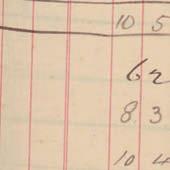 10 5
62
8 3
10 4